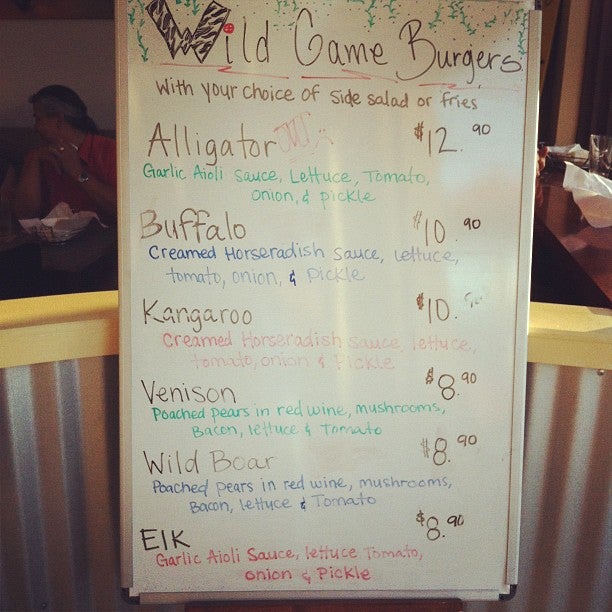 Wild Game Burgers
With your choice of side salad or fries
Alligator $12.90
Garlic Aioli Sauce, Lettuce, Tomato,
onion, & pickle
Buffalo $10.90
Creamed Horseradish Sauce, lettuce,
tomato, onion, & Pickle
Kangaroo $10.
Creamed Horseradish Sauce, lettuce,
tomato, onion & Pickle
Venison $8.90
Poached pears in red wine, mushrooms,
Bacon, lettuce & Tomato
Wild Boar $8.90
Poached pears in red wine, mushrooms,
Bacon, lettuce & Tomato
Elk $8.90
Garlic Aioli Sauce, lettuce Tomato,
onion & Pickle